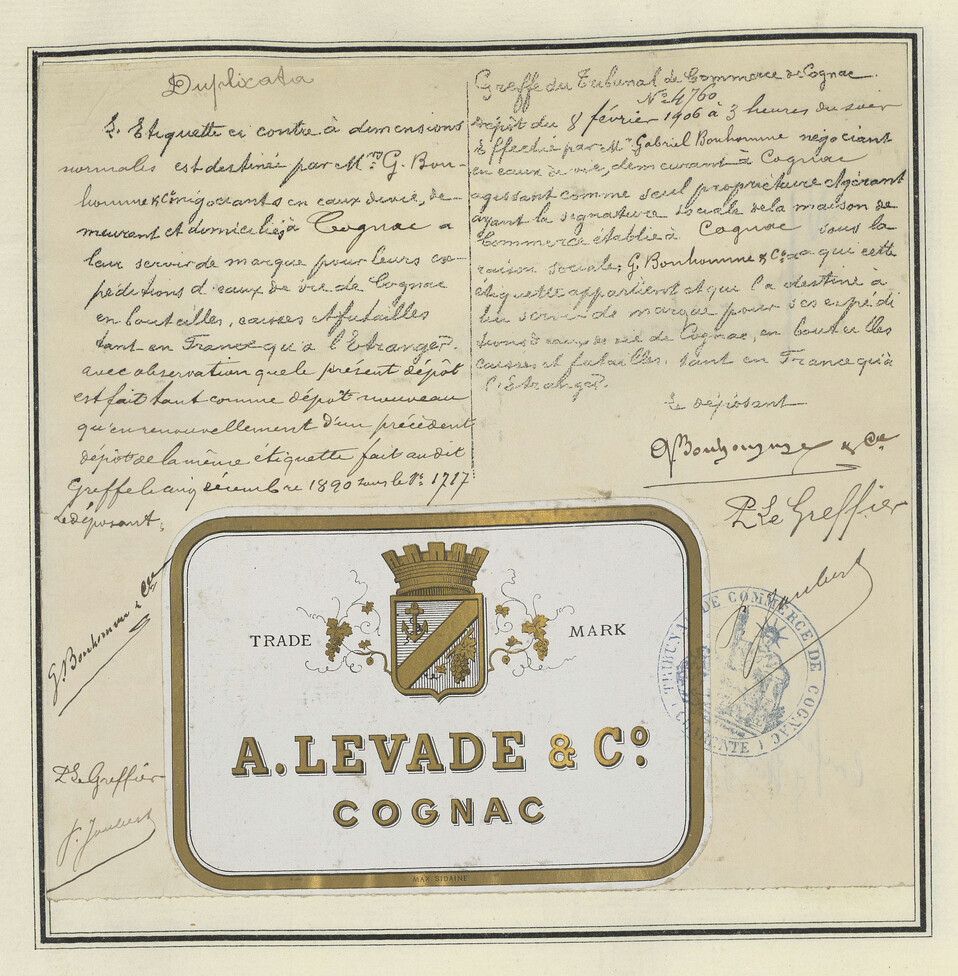 Duplicata
L'Etiquette ci contre à dimensions
normales est destinée par Mrs G. Bon-
homme & Co négociants en eaux de vie, de-
meurant et domiciliés à Cognac a
leur servir de marque pour leurs ex-
péditions d'eaux de vie de Cognac
en bouteilles, caisses et futailles
tant en France qu'a l'Etranger.
avec observation que le présent dépôt
est fait tant comme dépôt nouveau
qu'en renouvellement d'un précédent
dépôt de la même étiquette fait au dit
Greffe le cinq décembre 1890 sous le No 1717
Le déposant,
G. Bonhomme & Cie
P. Le Greffier
J. Joubert
Greffe du Tribunal de Commerce de Cognac.
No 4760
Dépôt du 8 février 1906 à 3 heures du soir
Effectué par Mr Gabriel Bonhomme négociant
en eaux de vie, demeurant à Cognac
agissant comme seul propriétaire et gérant
ayant la signature sociale de la maison de
Commerce établie à Cognac sous la
raison sociale, G. Bonhomme & Co a qui cette
étiquette appartient et qui l'a destine à
lui servir de marque pour ses expédi
tions d'eaux de vie de Cognac, en bouteilles
caisses et futailles, tant en France qu'à
l'étranger.
Le déposant
G Bonhomme & Cie
P. Le Greffier
J. Joubert
TRADE MARK
A. LEVADE & Co.
COGNAC
MAX SIDAINE
TRIBUNAL DE COMMERCE DE COGNAC